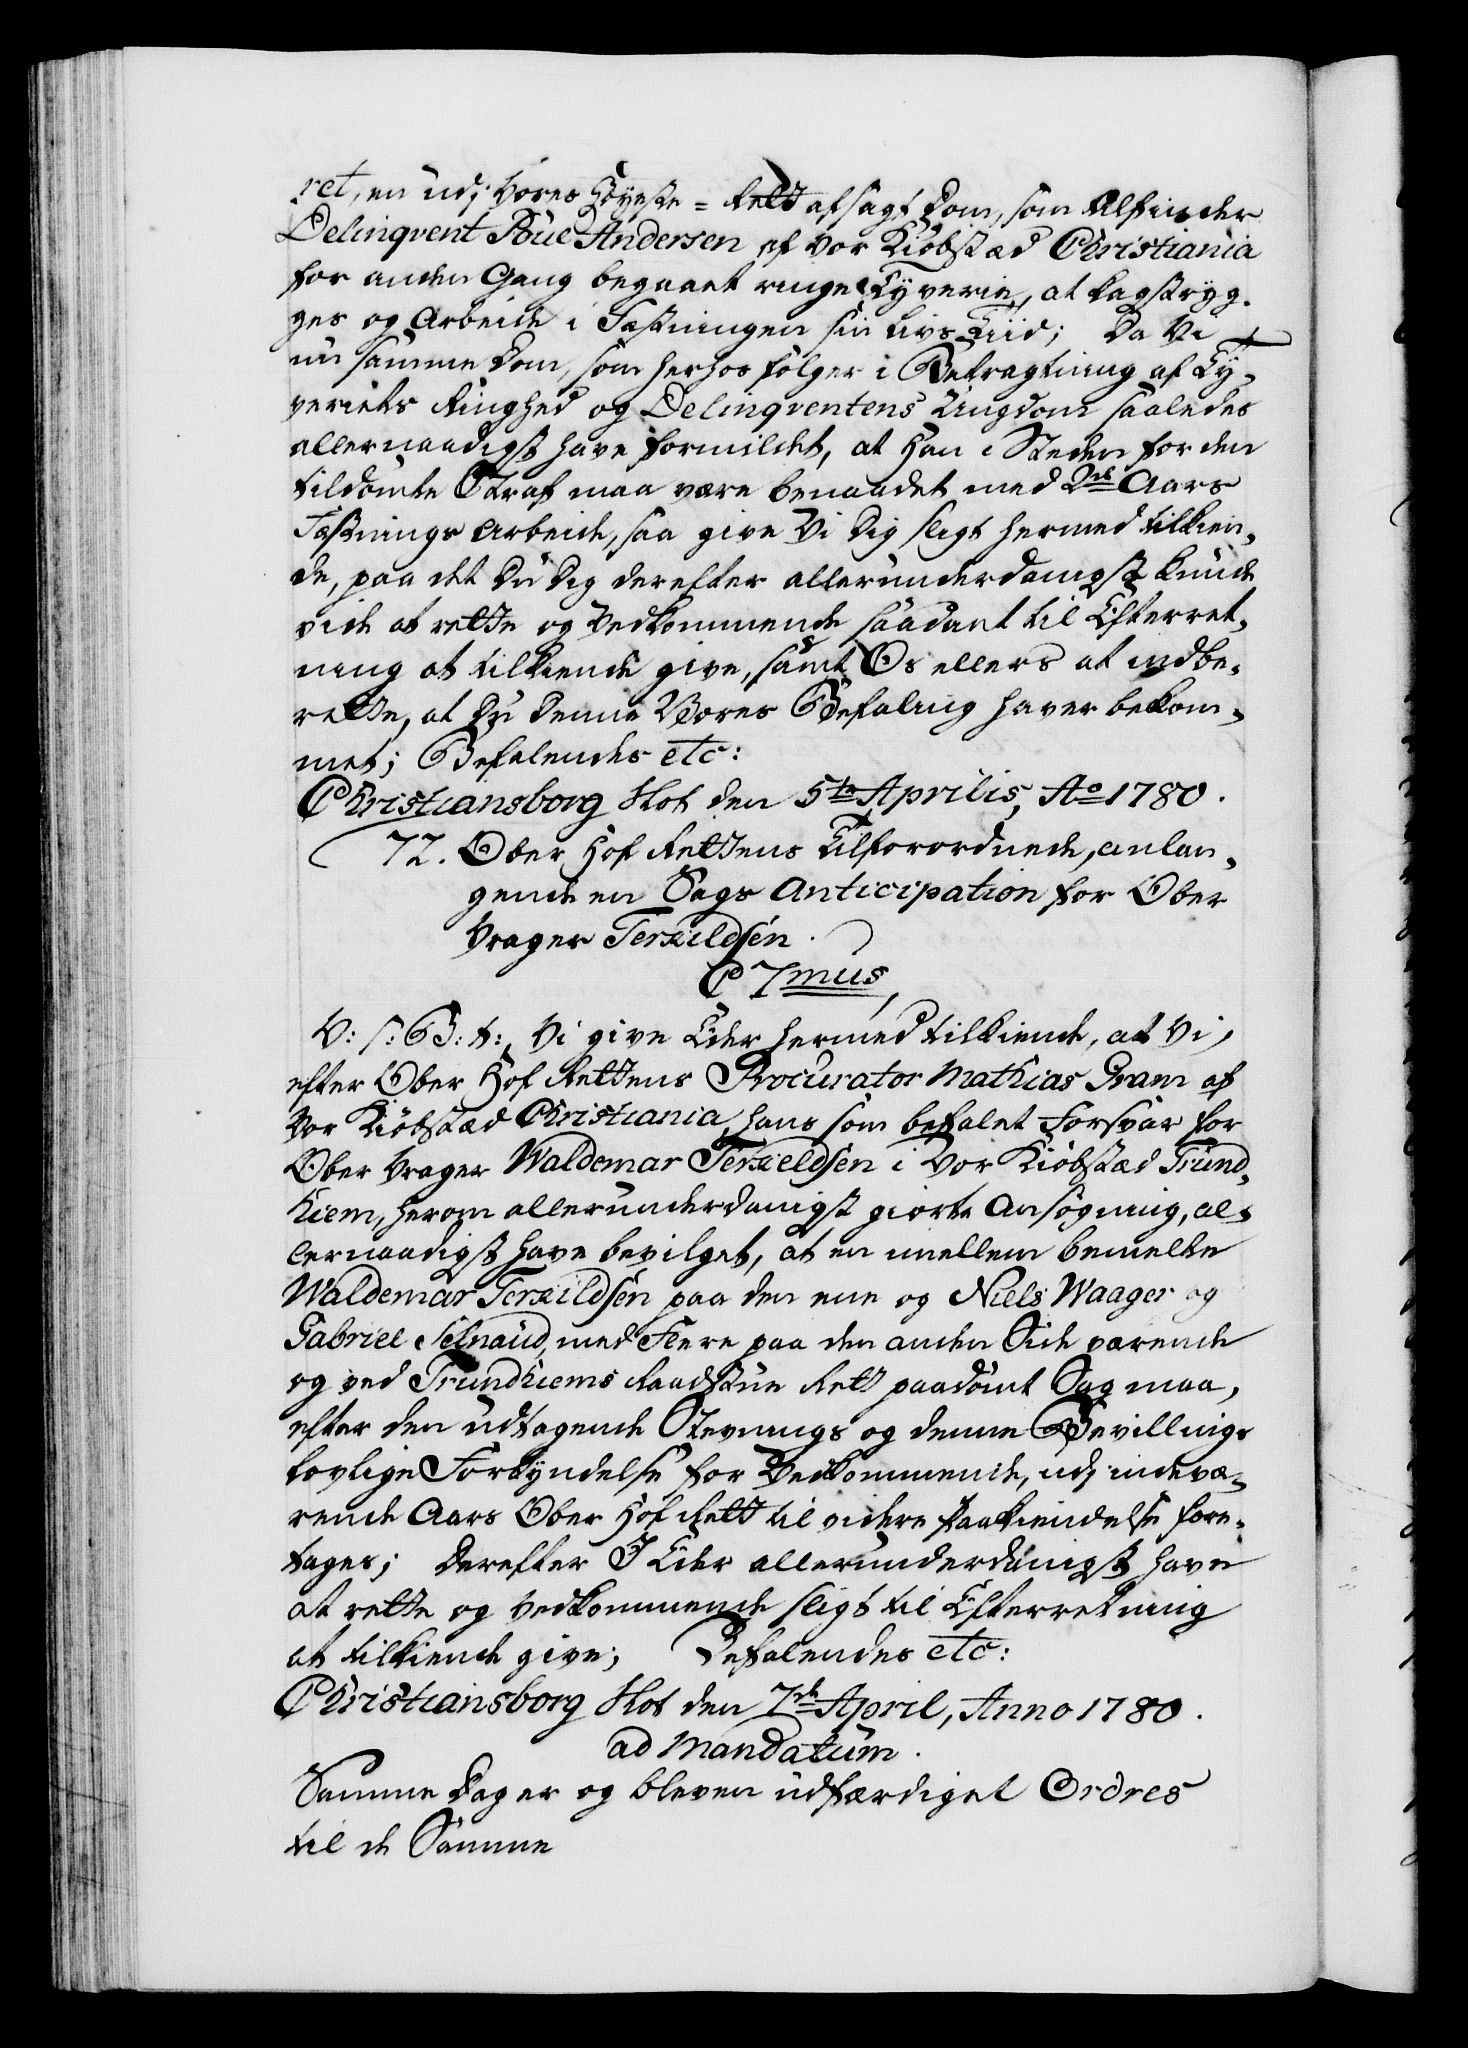 ret, en udj Vores Høyeste-Rett afsagt Dom, som tilfinder
Delinqvent Poul Andersen af Vor Kiøbstæd Christiania
for anden Gang begaaet ringe Tyverie, at kagstryg-
ges og Arbeide i Fæstningen sin Livs Tiid; Da Vi
nu samme Dom, som herhos følger i Betragtning af Ty-
veriets Ringhed og Delinqventens Ungdom saaledes
allernaadigst have formildet, at Han i Steden for den
tildømte Straf maa være benaadet med 2de Aars
Fæstnings Arbeide, saa give Vi Dig sligt hermed tilkien-
de, paa det Du Dig derefter allerunderdanigst kunde
vide at rette og Vedkommende saadant til Efterret-
ning at tilkiende give, samt Os ellers at indbe-
rette, at Du denne Vores Befaling haver bekom-
met; Befalendes etc:
Christiansborg Slot den 5te Aprilis, Ao 1780.
72. Ober Hof Rettens Tilforordnede, anlan-
gende en Sags Anticipation for Ober
Vrager Terkildsen.
C 7mus,
V: S: G: t:, Vi give Eder hermed tilkiende, at Vi,
efter Ober Hof Rettens Procurator Mathias Gram af
Vor Kiøbstæd Christiania, hans som befalet Forsvar for
Ober Vrager Waldemar Terkeldsen i Vor Kiøbstæd Trund-
hiem, herom allerunderdanigst giorte Ansøgning, al-
lernaadigst have bevilget, at en imellem bemelte
Waldemar Terkildsen paa den ene og Niels Waager og
Gabriel Selnaud, med Flere paa den anden Side værende
og ved Trundhiems Raadstue Rett paadømt Sag maa,
efter den udtagende Stevnings og denne Bevillings
lovlige Forkyndelse for Vedkommende, udj indevæ-
rende Aars Ober Hof Rett til videre Paakiendelse fore-
tages; Derefter I Eder allerunderdanigst have
at rette og Vedkommende sligt til Efterretning
at tilkiende give; Befalendes etc:
Christiansborg Slot den 7de April, Anno 1780.
ad Mandatum.
Samme Dag er og bleven udfærdiget Ordres
til de Samme